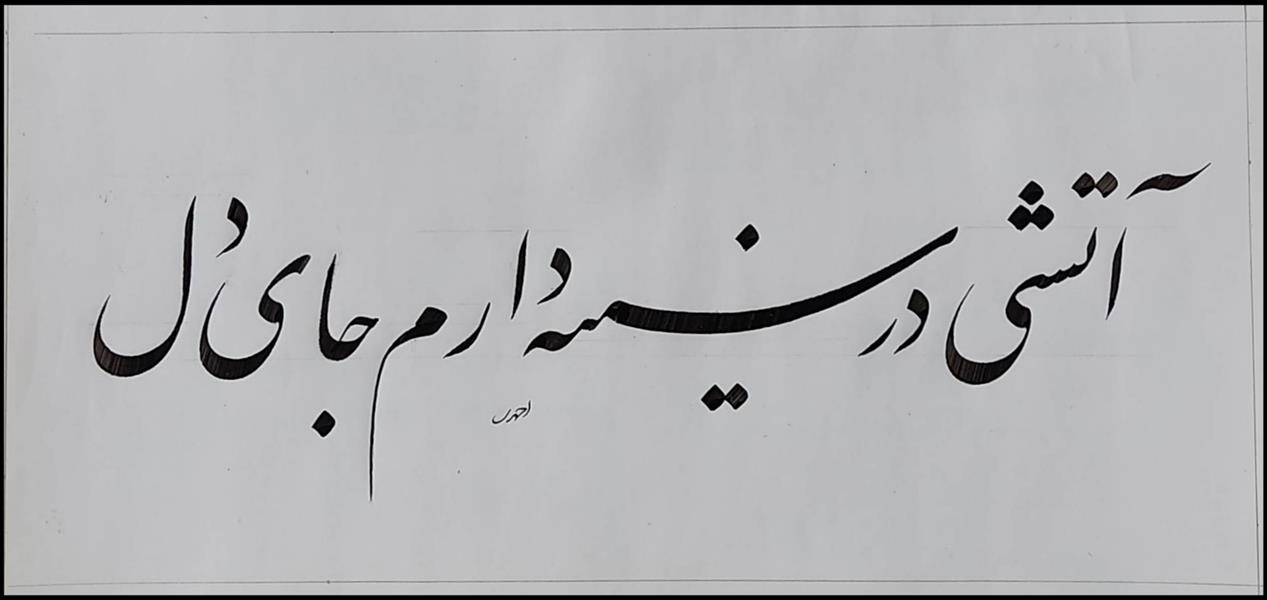 آتشی در سینه دارم جای دل